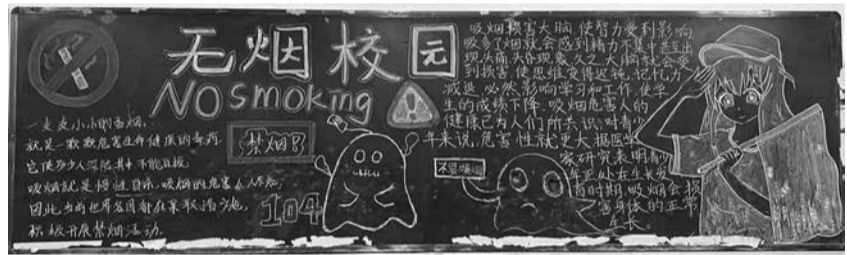 无烟校园
NO smoking
一支支小小的香烟,
就是一款款危害生命健康的毒药.
它使多少人深陷其中不能自拔,
吸烟就是慢性自杀,吸烟的危害人人尽知,
因此,当前世界各国都在采取措施,
积极开展禁烟活动.
禁烟
104
不要吸烟
吸烟损害大脑,使智力受到影响
吸多了烟就会感到精力不集中,甚至出
现头痛头昏现象,久之,大脑就会受
到损害,使思维变得迟钝,记忆力
减退,必然影响学习和工作,使学
生的成绩下降.吸烟危害人的
健康已为人们所共识,对青少
年来说,危害性就更大,据医学
家研究表明,青少
年正处在生长发
育时期,吸烟会损
害身体的正常
生长.